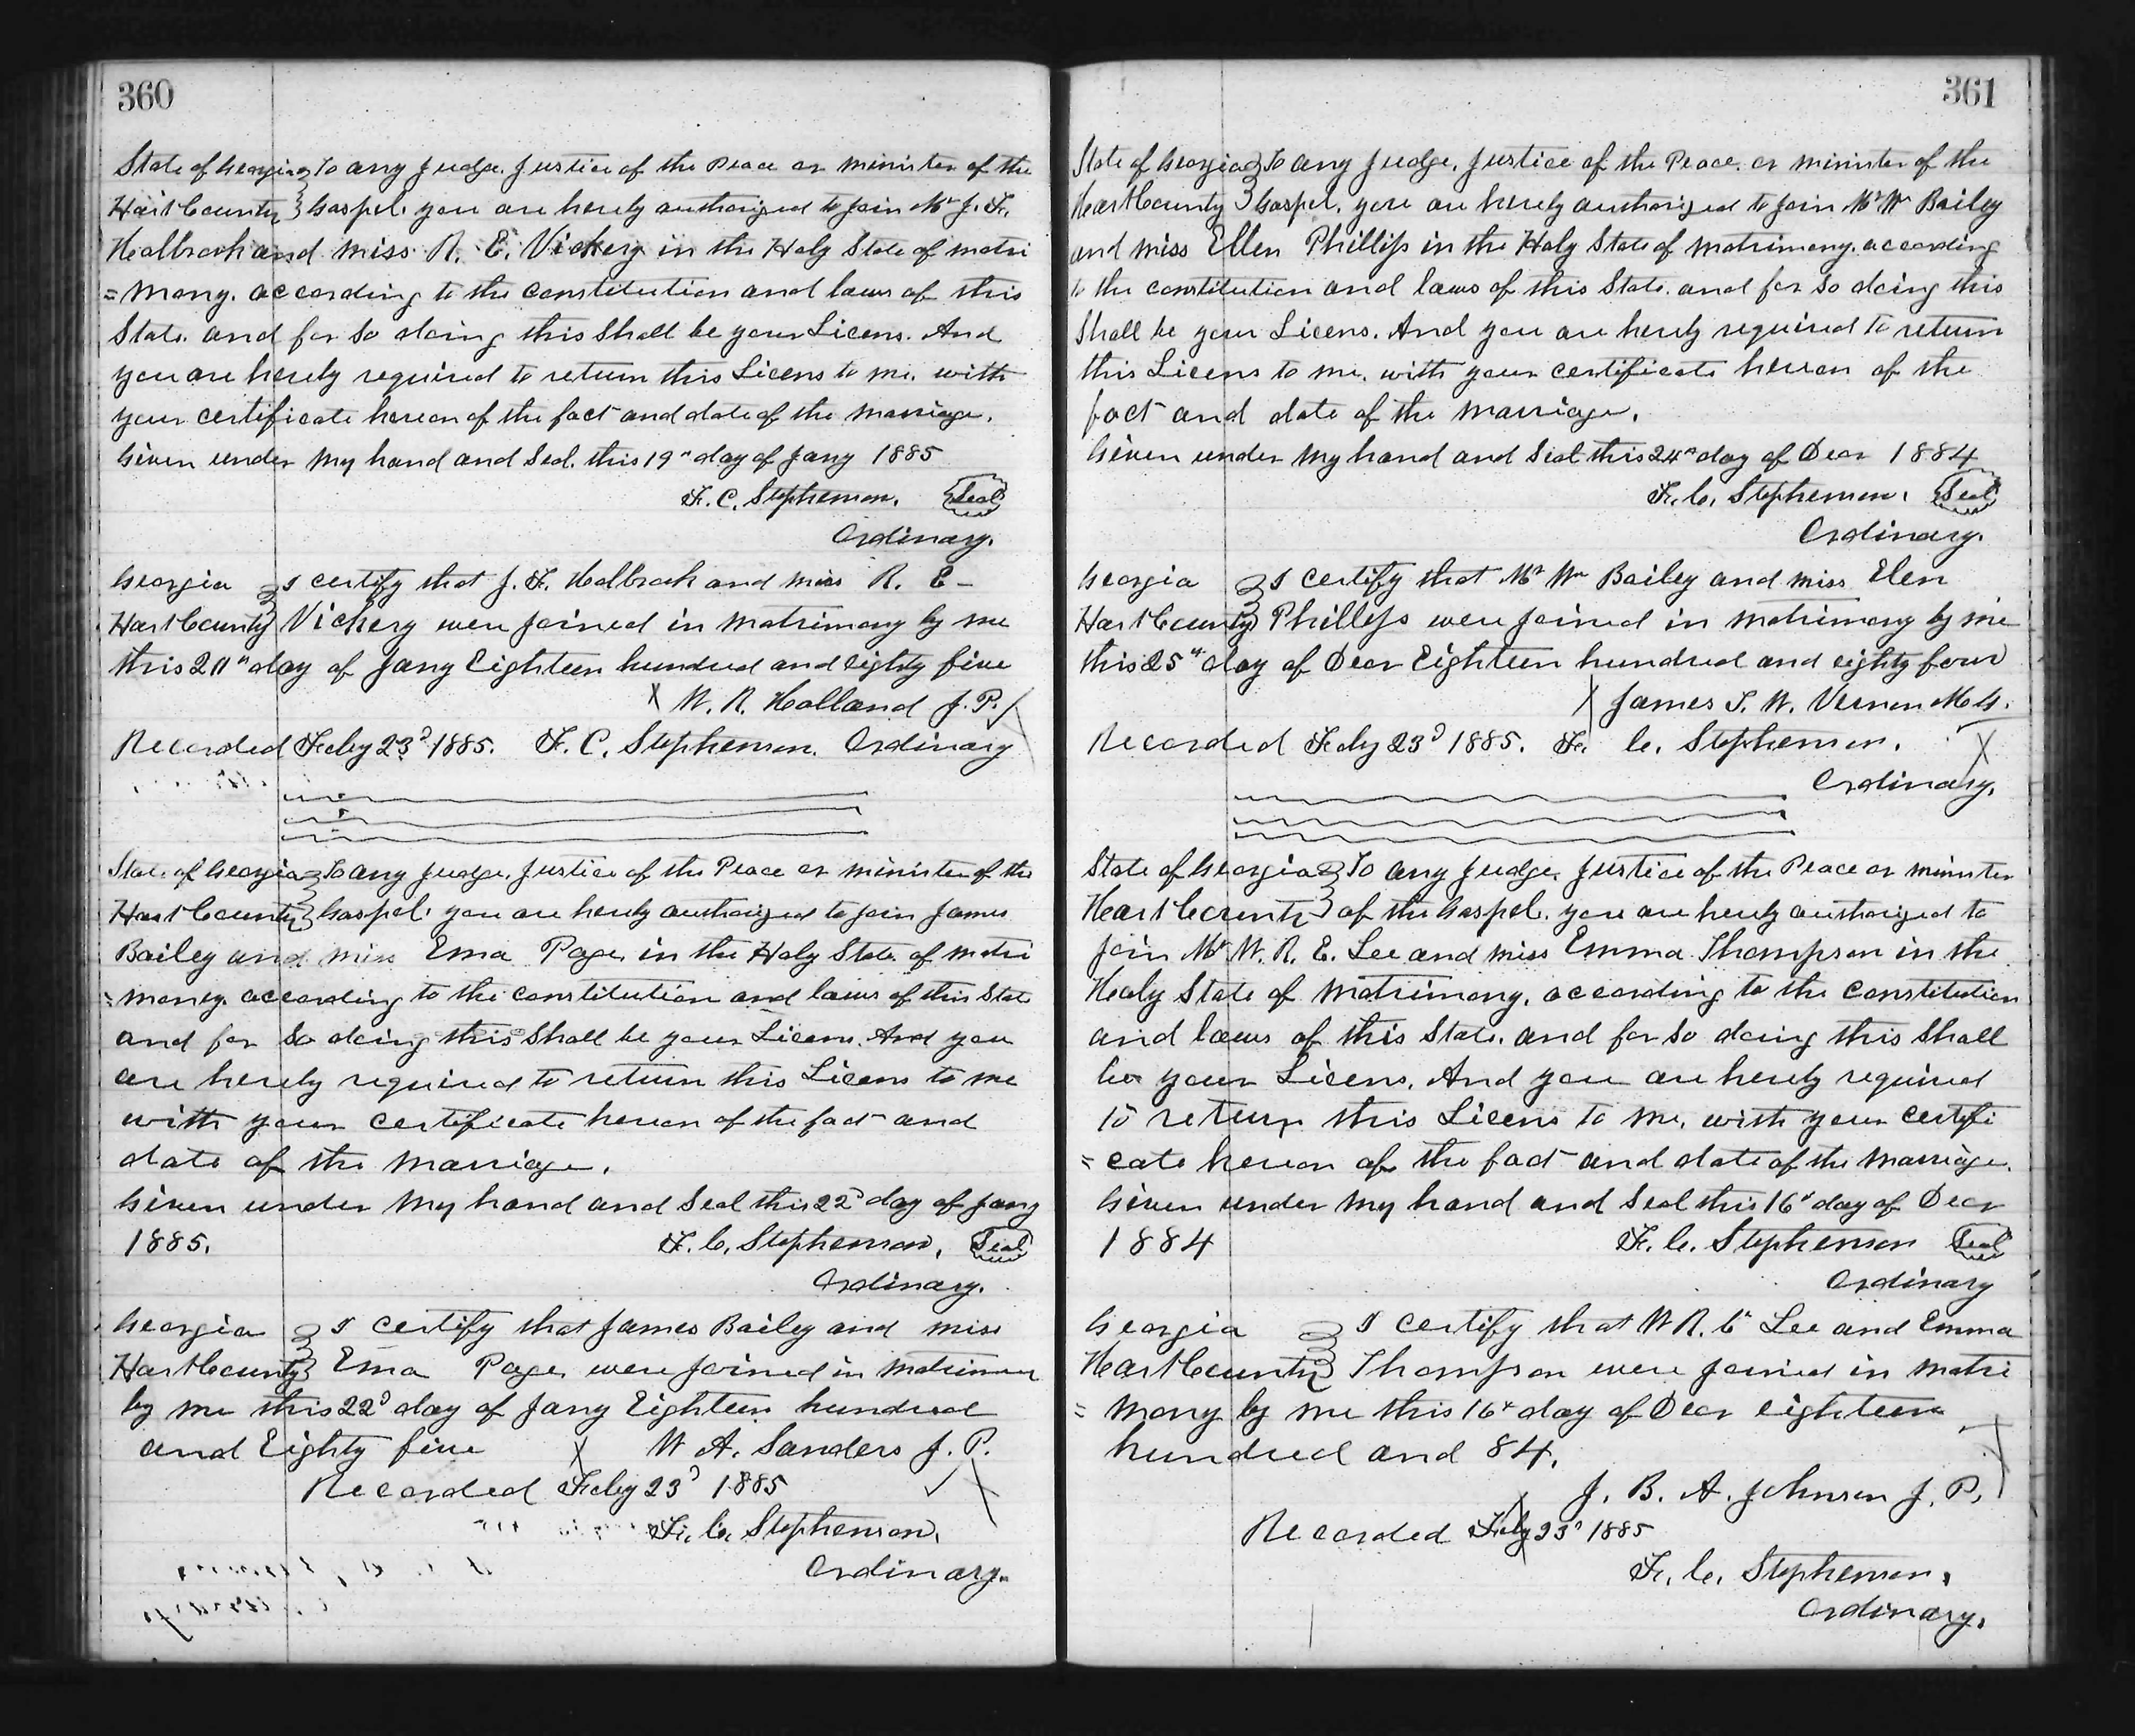 360
State of Georgia } To any Judge. Justice of the Peace or minister of the
Hart County } Gospel. you are hereby authorized to join Mr J. F.
Holbrook and miss R. E. Vickery in the Holy State of matri
=mony. according to the constitution and laws of this
State. and for so doing this shall be your Licens. And
you are hereby required to return this Licens to me. with
your certificate hereon of the fact and date of the marriage.
Given under my hand and Seal. this 19th day of Jany 1885
F. C. Stephenson. Seal
Ordinary.
Georgia } I certify that J. F. Holbrook and miss R. E-
Hart County } Vickery were joined in matrimony by me
this day of Jany Eighteen hundred and eighty five
X W. R. Holland J. P.
Recorded Feby 23d 1885. F. C. Stephenson. Ordinary
State of Georgia } To any Judge. Justice of the Peace or minister of the
Hart County } Gospel. you are hereby authorized to join James
Bailey and miss Ema Page in the Holy State of matri
=mony. according to the constitution and laws of this State
and for so doing this shall be your Licens. And you
are hereby required to return this Licens to me
with your certificate hereon of the fact and
date of the marriage.
Given under my hand and Seal this 22d day of Jany
1885. F. C. Stephenson. Seal
Ordinary.
Georgia } I certify that James Bailey and miss
Hart County } Ema Page were joined in matrimony
by me this 22d day of Jany Eighteen hundred
and Eighty five X W A. Sanders J. P.
Recorded Feby 23d 1885
F. C. Stephenson.
Ordinary.
361
State of Georgia } To any Judge. Justice of the Peace. or minister of the
Hart County } Gospel. you are hereby authorized to join Mr Wm Bailey
and miss Ellen Phillips in the Holy State of matrimony. according
to the constitution and laws of this State. and for so doing this
shall be your Licens. And you are hereby required to return
this Licens to me. with your certificate hereon of the
fact and date of the marriage.
Given under my hand and Seal this 24th day of Decr 1884
F. C. Stephenson. Seal
Ordinary.
Georgia } I certify that Mr Wm Bailey and miss Elen
Hart County } Phillips were joined in matrimony by me
this 25th day of Decr Eighteen hundred and eighty four
X James T. W. Vernon M. G.
Recorded Feby 23d 1885. F. C. Stephenson. X
Ordinary.
State of Georgia } To any Judge. Justice of the Peace or minister
Hart County } of the Gospel. you are hereby authorized to
join Mr W. R. E. Lee and miss Emma Thompson in the
Holy State of matrimony. according to the constitution
and laws of this State. and for so doing this shall
be your Licens. And you are hereby required
to return this Licens to me. with your certifi
=cate hereon of the fact and date of the marriage.
Given under my hand and Seal this 16th day of Decr
1884 F. C. Stephenson Seal
Ordinary
Georgia } I certify that W R. E Lee and Emma
Hart County } Thompson were joined in matri
=mony by me this 16th day of Decr eighteen
hundred and 84.
J. B. A. Johnson J. P.
Recorded Feby 23d 1885
F. C. Stephenson.
Ordinary.